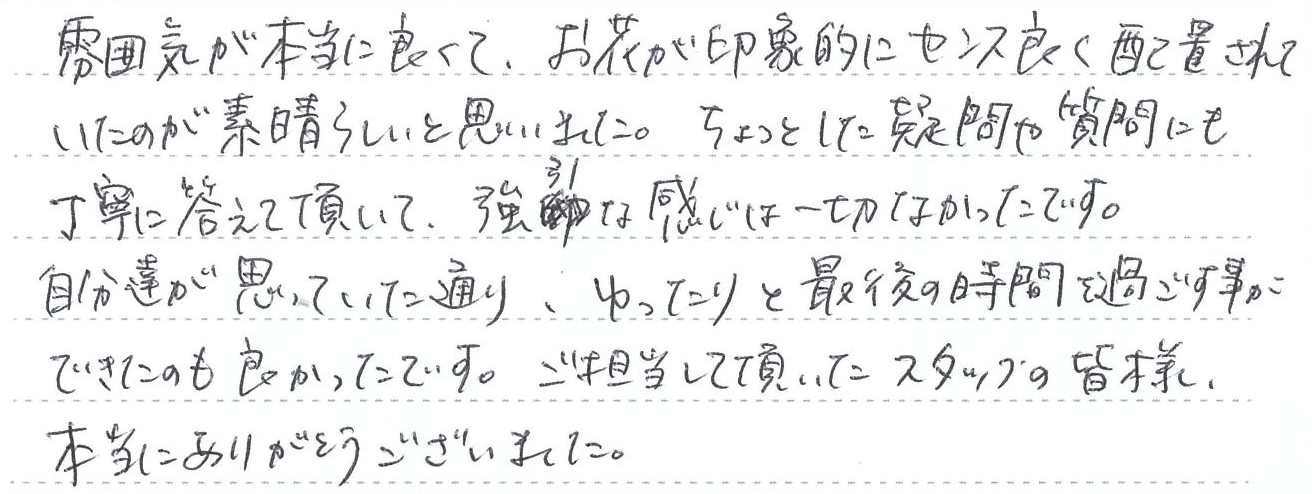 雰囲気が本当に良くて、お花が印象的にセンス良く配置されて
いたのが素晴らしいと思いました。ちょっとした疑問や質問にも
丁寧に答えて頂いて、強引な感じは一切なかったです。
自分達が思っていた通り、ゆったりと最後の時間を過ごす事が
できたのも良かったです。ご担当して頂いたスタッフの皆様、
本当にありがとうございました。